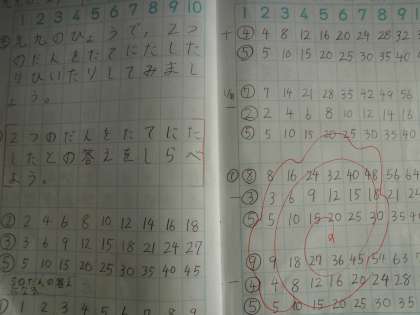 1 2 3 4 5 6 7 8 9 10
九九のひょうで、2つ
のだんをたてにたした
りひいたりしてみまし
ょう。
2つのだんをたてにた
したとの答えをしらべ
よう。
② 2 4 6 8 10 12 14 16 18
③ 3 6 9 12 15 18 21 24 27
⑤ 5 10 15 20 25 30 35 40 45
5のだんの答え
1 2 3 4 5 6 7 8 9
1 2 3 4 5 6 7 8
+ ④ 4 8 12 16 20 24 28 32
⑤ 5 10 15 20 25 30 35 40
⑦ 7 14 21 28 35 42 49 56
② 2 4 6 8 10 12 14 16
⑤ 5 10 15 20 25 30 35 40
⑧ 8 16 24 32 40 48 56 64
- ③ 3 6 9 12 15 18 21 24
⑤ 5 10 15 20 25 30 35 40
⑨ 9 18 27 36 45 54 63
- ④ 4 8 12 16 20 24 28
⑤ 5 10 15 20 25 30 35